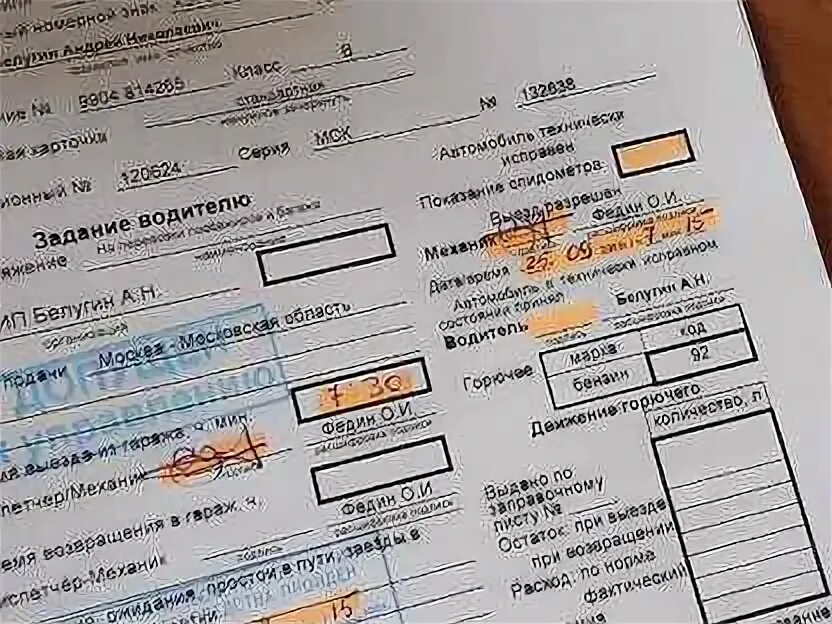 номерной знак
Белугин Андрей Николаевич
Класс В
№ 9904 814265
стандартная
карточки
Серия МСК № 132638
№ 120624
Задание водителю
ИП Белугин А.Н.
подачи Москва - Московская область
7 30
Федин О.И.
расшифровка подписи
выезда из гаража, ч. мин.
Диспетчер/Механик подпись
Федин О.И
расшифровка подписи
возвращения в гараж, ч
Диспетчер-Механик подпись
ожидания, простой в пути, заезды в
15
Автомобиль технически
исправен
Показание спидометра
Выезд разрешан
Механик Федин О.И.
Дата/время 25 05 7 мин 15
Автомобиль в технически исправном
состоянии принял
Водитель Белугин А.Н.
подпись расшифровка подписи
Горючее марка код
бензин 92
Движение горючего
количество, л
Выдано по
заправочному
листу №
Остаток: при выезде
при возвращении
Расход: по норме
фактический